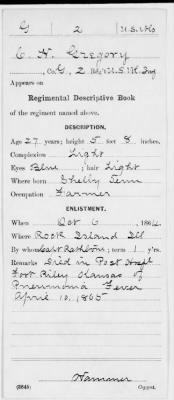 G 2 U.S. Vols
C. N. Gregory
Co. G, 2 Reg't U.S. Vol. Inf.
Appears on
Regimental Descriptive Book
of the regiment named above.
DESCRIPTION.
Age 27 years; height 5 feet 8 inches.
Complexion Light
Eyes Blue; hair Light
Where born Shelby Tenn
Occupation Farmer
ENLISTMENT.
When Oct 6, 1864.
Where Rock Island Ill
By whom Capt Rathbone; term 1 y'rs.
Remarks Died in Post Hospt
Fort Riley Kansas of
Pneumonia Fever
April 10, 1865
Hammer
(3845) Copyist.